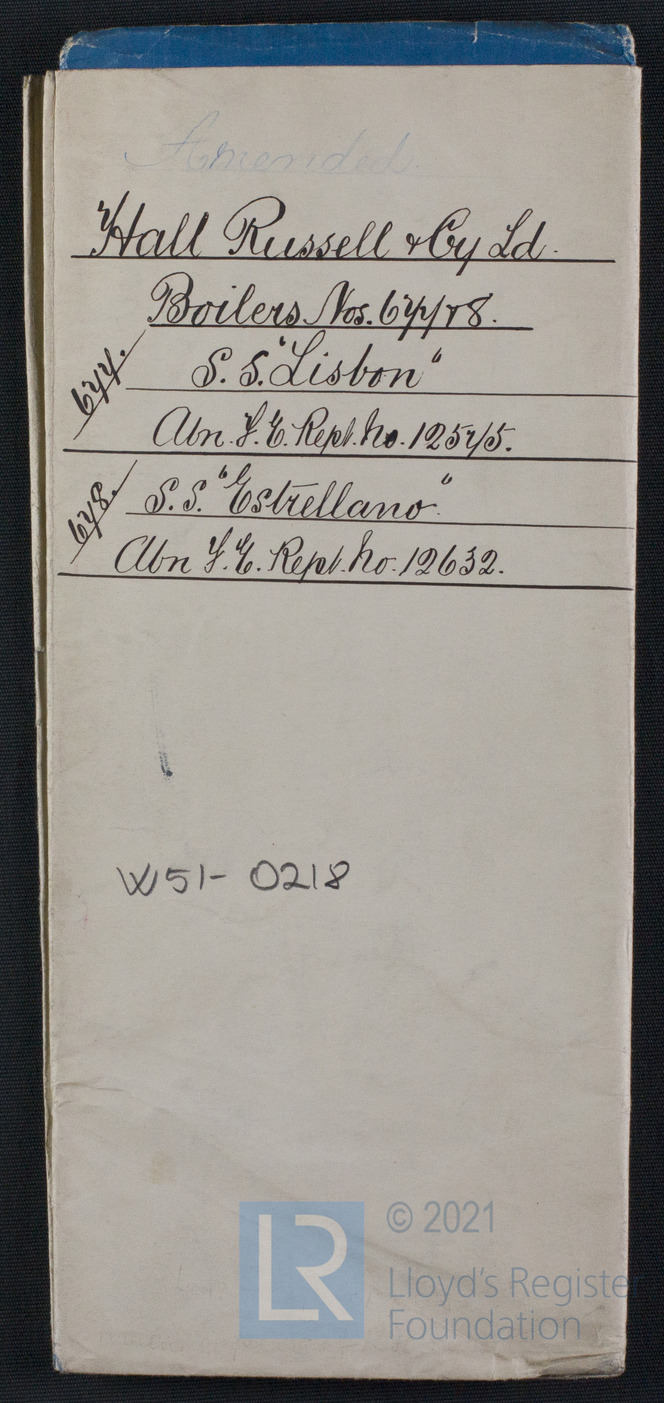 Amended.
Hall Russell & Cy Ld.
Boilers Nos. 677/78.
677.
S.S. "Lisbon"
Abn. F.E. Rept. No. 12575.
678.
S.S. "Estrellano"
Abn F.E. Rept. No. 12632.
W51-0218
LR
© 2021
Lloyd's Register
Foundation